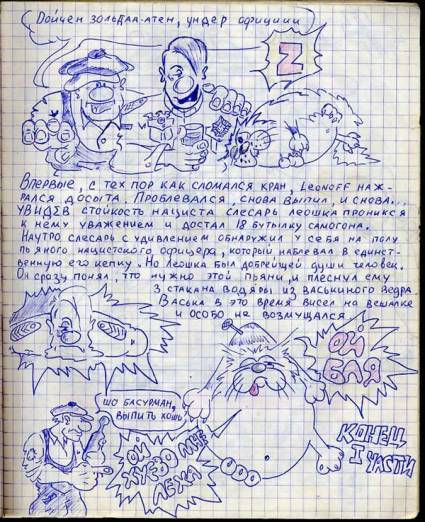 Дойчен зольдаа-атен, ундер официнни
Z
Впервые, с тех пор как сломался кран, Leonoff наж-
рался досыта. Проблевался, снова выпил, и снова...
Увидев стойкость нациста слесарь Леошка проникся
к нему уважением и достал 18 бутылку самогона.
Наутро слесарь с удивлением обнаружил у себя на полу
пьяного нацистского офицера, который наблевал в единст-
венную его кепку. Но Леошка был добрейшей души человек.
Он сразу понял, что нужно этой пьяни, и плеснул ему
3 стакана водяры из Васькиного ведра.
Васька в это время висел на вешалке
и особо не возмущался
Ой
бля
Шо басурман,
выпить хошь
Ой
мне
Конец
I части